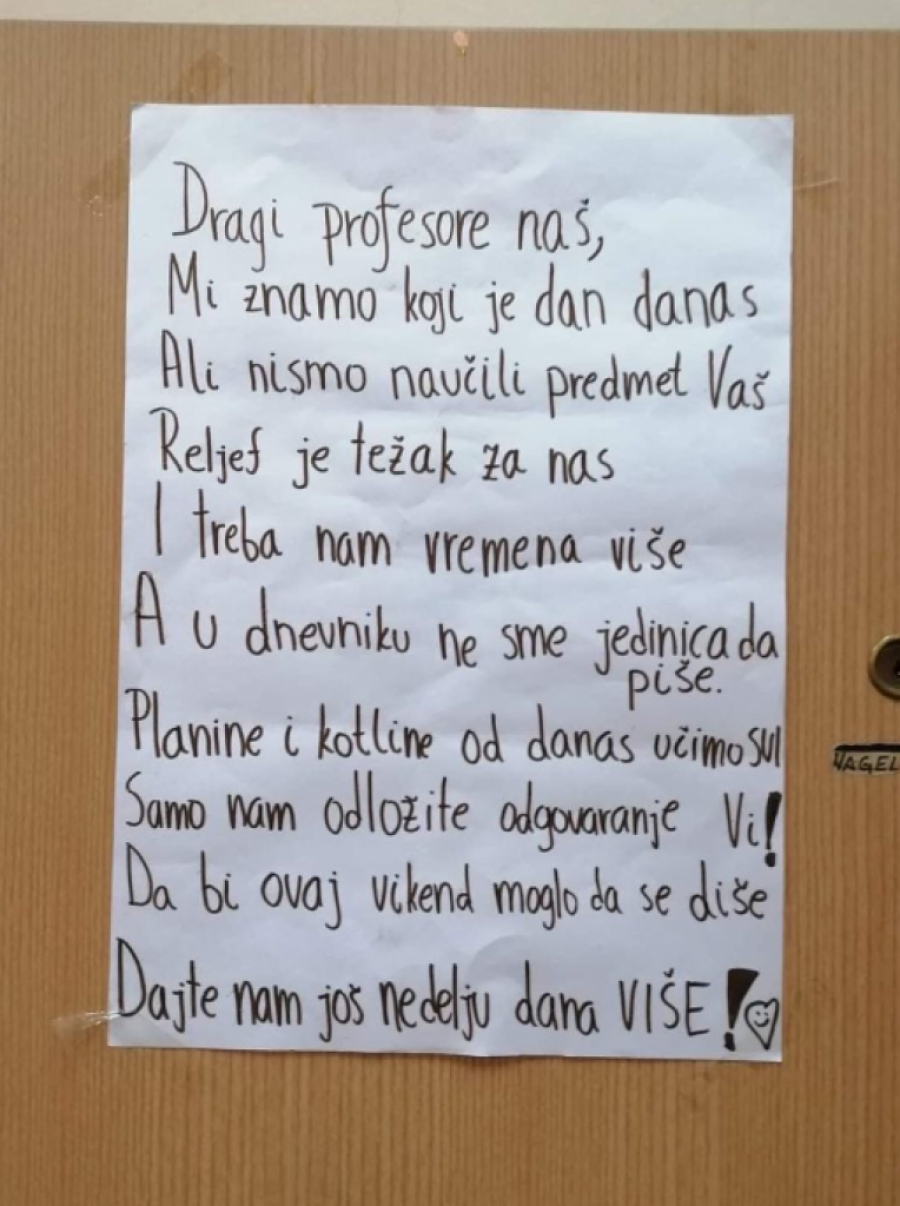 Dragi profesore naš,
Mi znamo koji je dan danas
Ali nismo naučili predmet Vaš
Reljef je težak za nas
I treba nam vremena više
A u dnevniku ne sme jedinica da
piše.
Planine i kotline od danas učimo svi
Samo nam odložite odgovaranje Vi!
Da bi ovaj vikend moglo da se diše
Dajte nam još nedelju dana VIŠE!